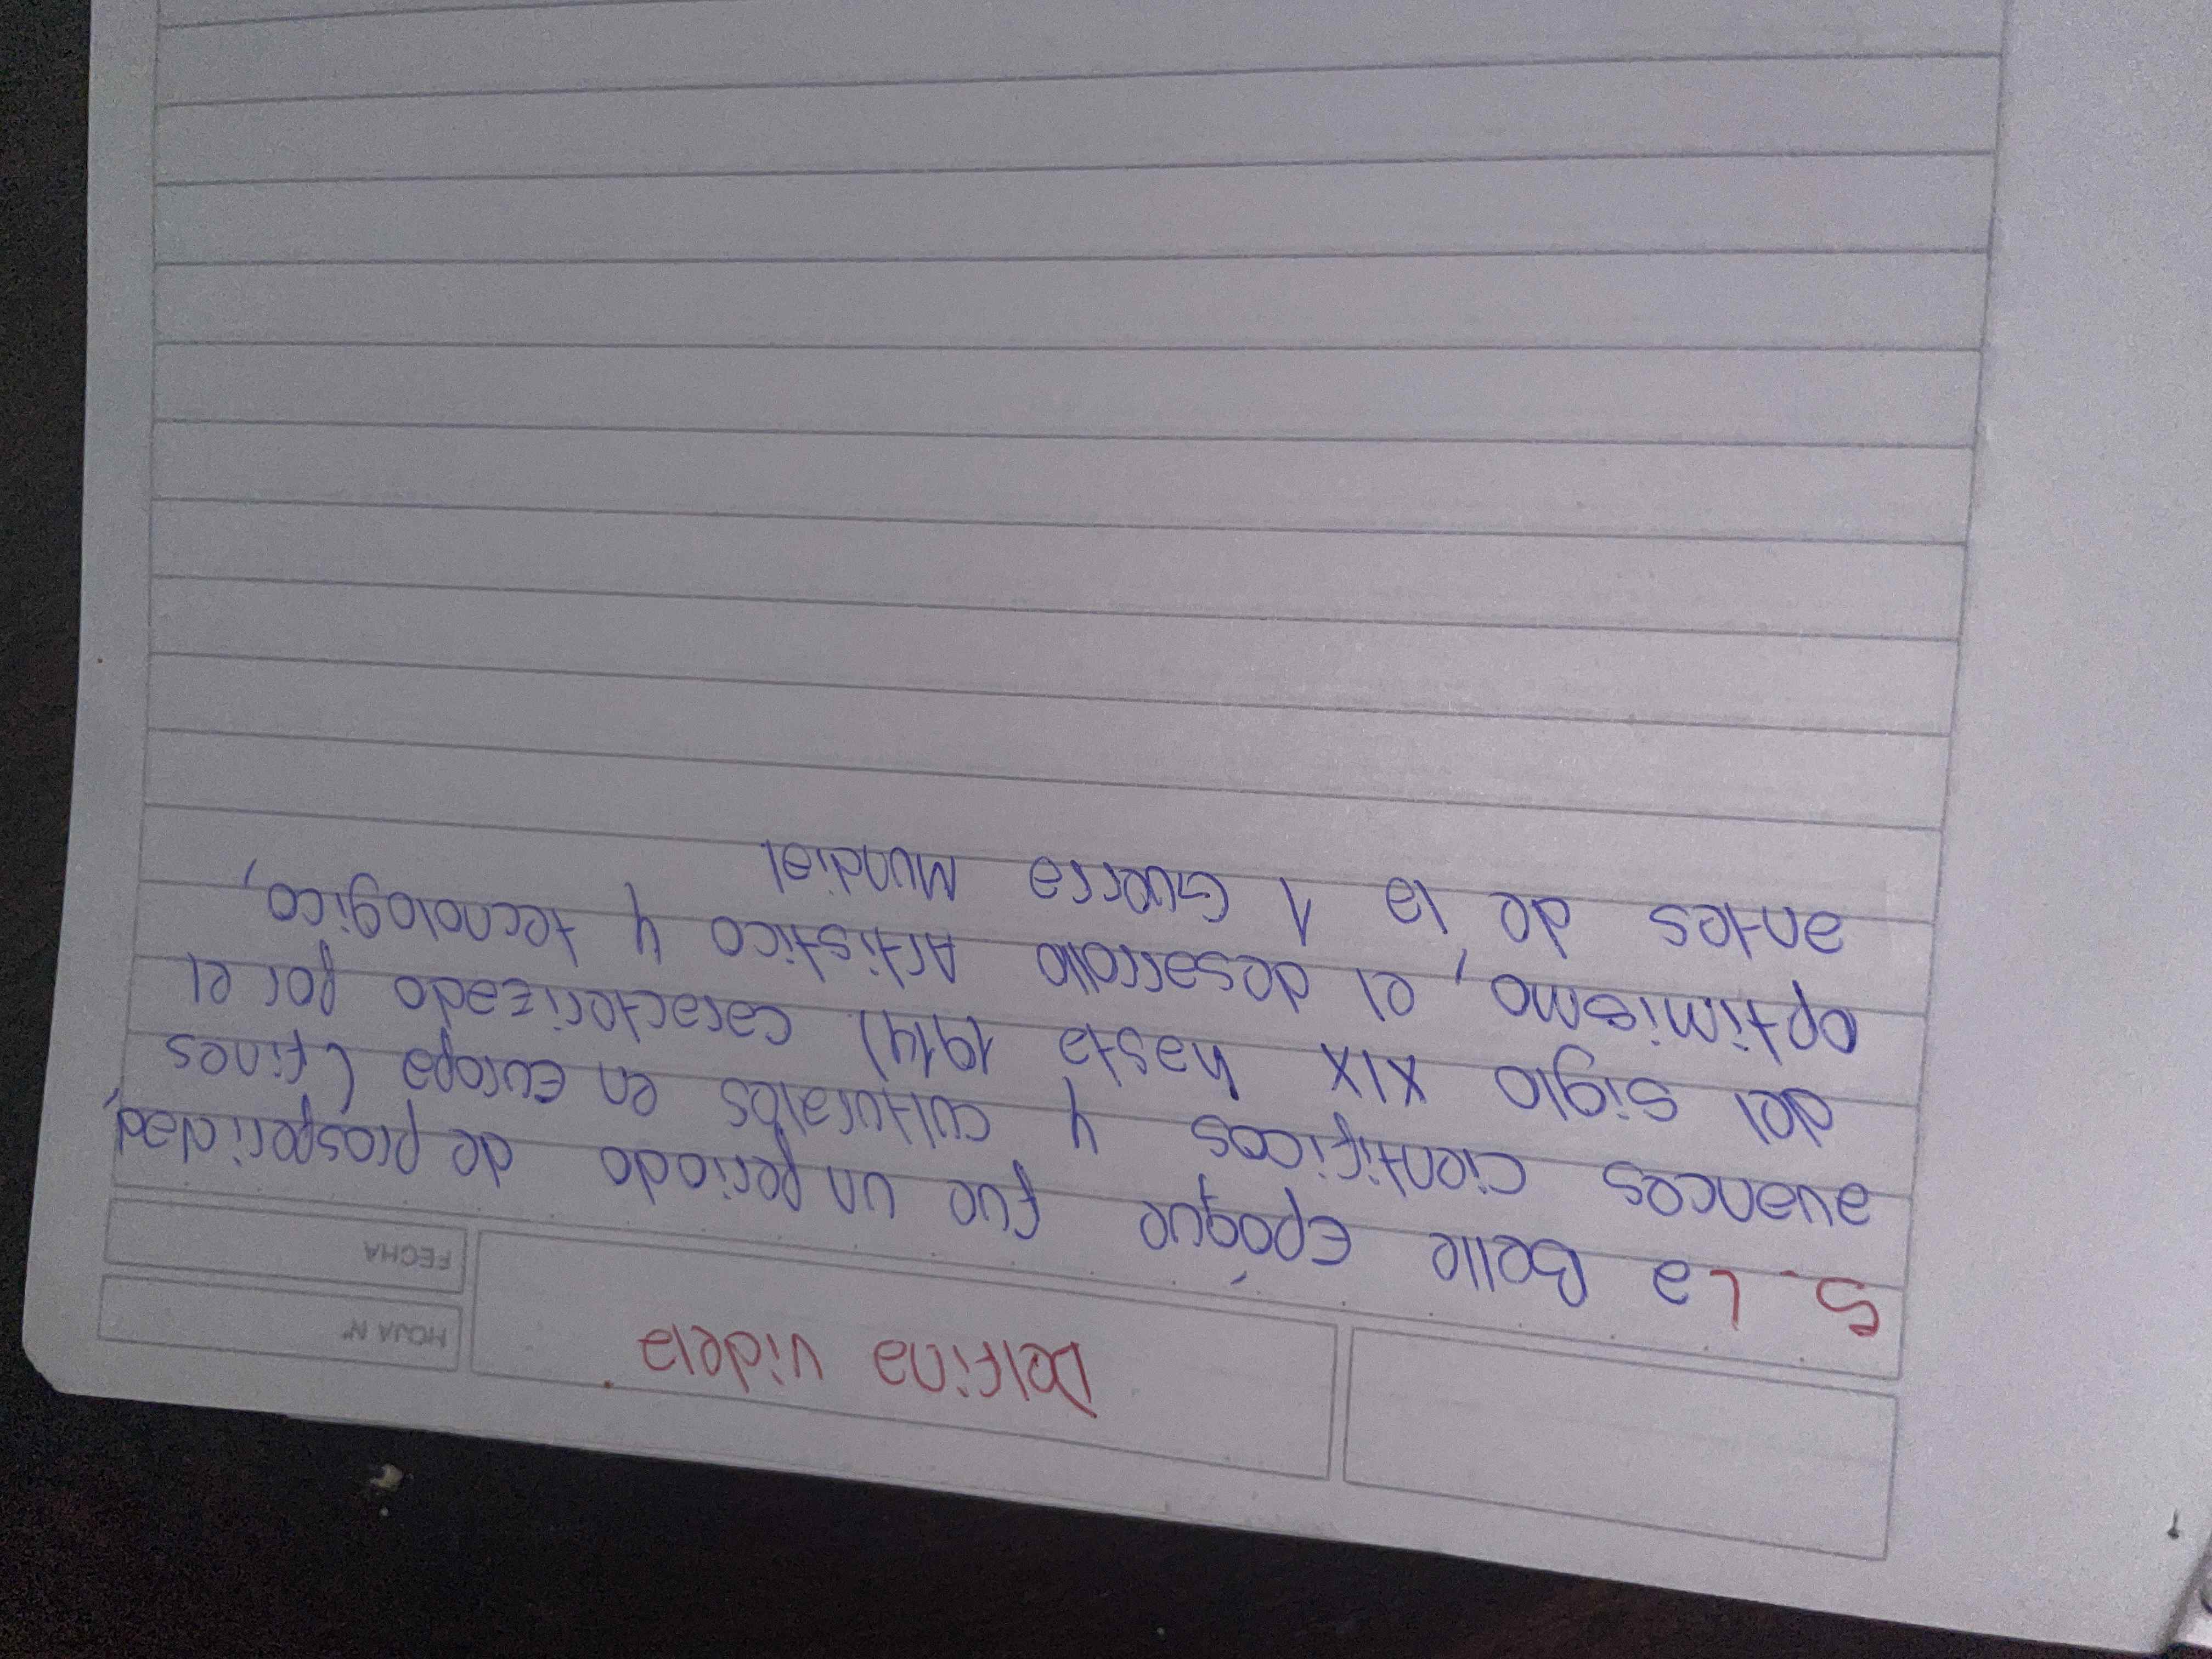 HOJA Nº
Delfina videla
FECHA
5. La Belle Epoque fue un periodo de prosperidad,
avances cientificos y culturales en Europa (fines
del siglo XIX hasta 1914) caracterizado por el
optimismo, el desarrollo Artistico y tecnologico,
antes de la 1 Guerra Mundial